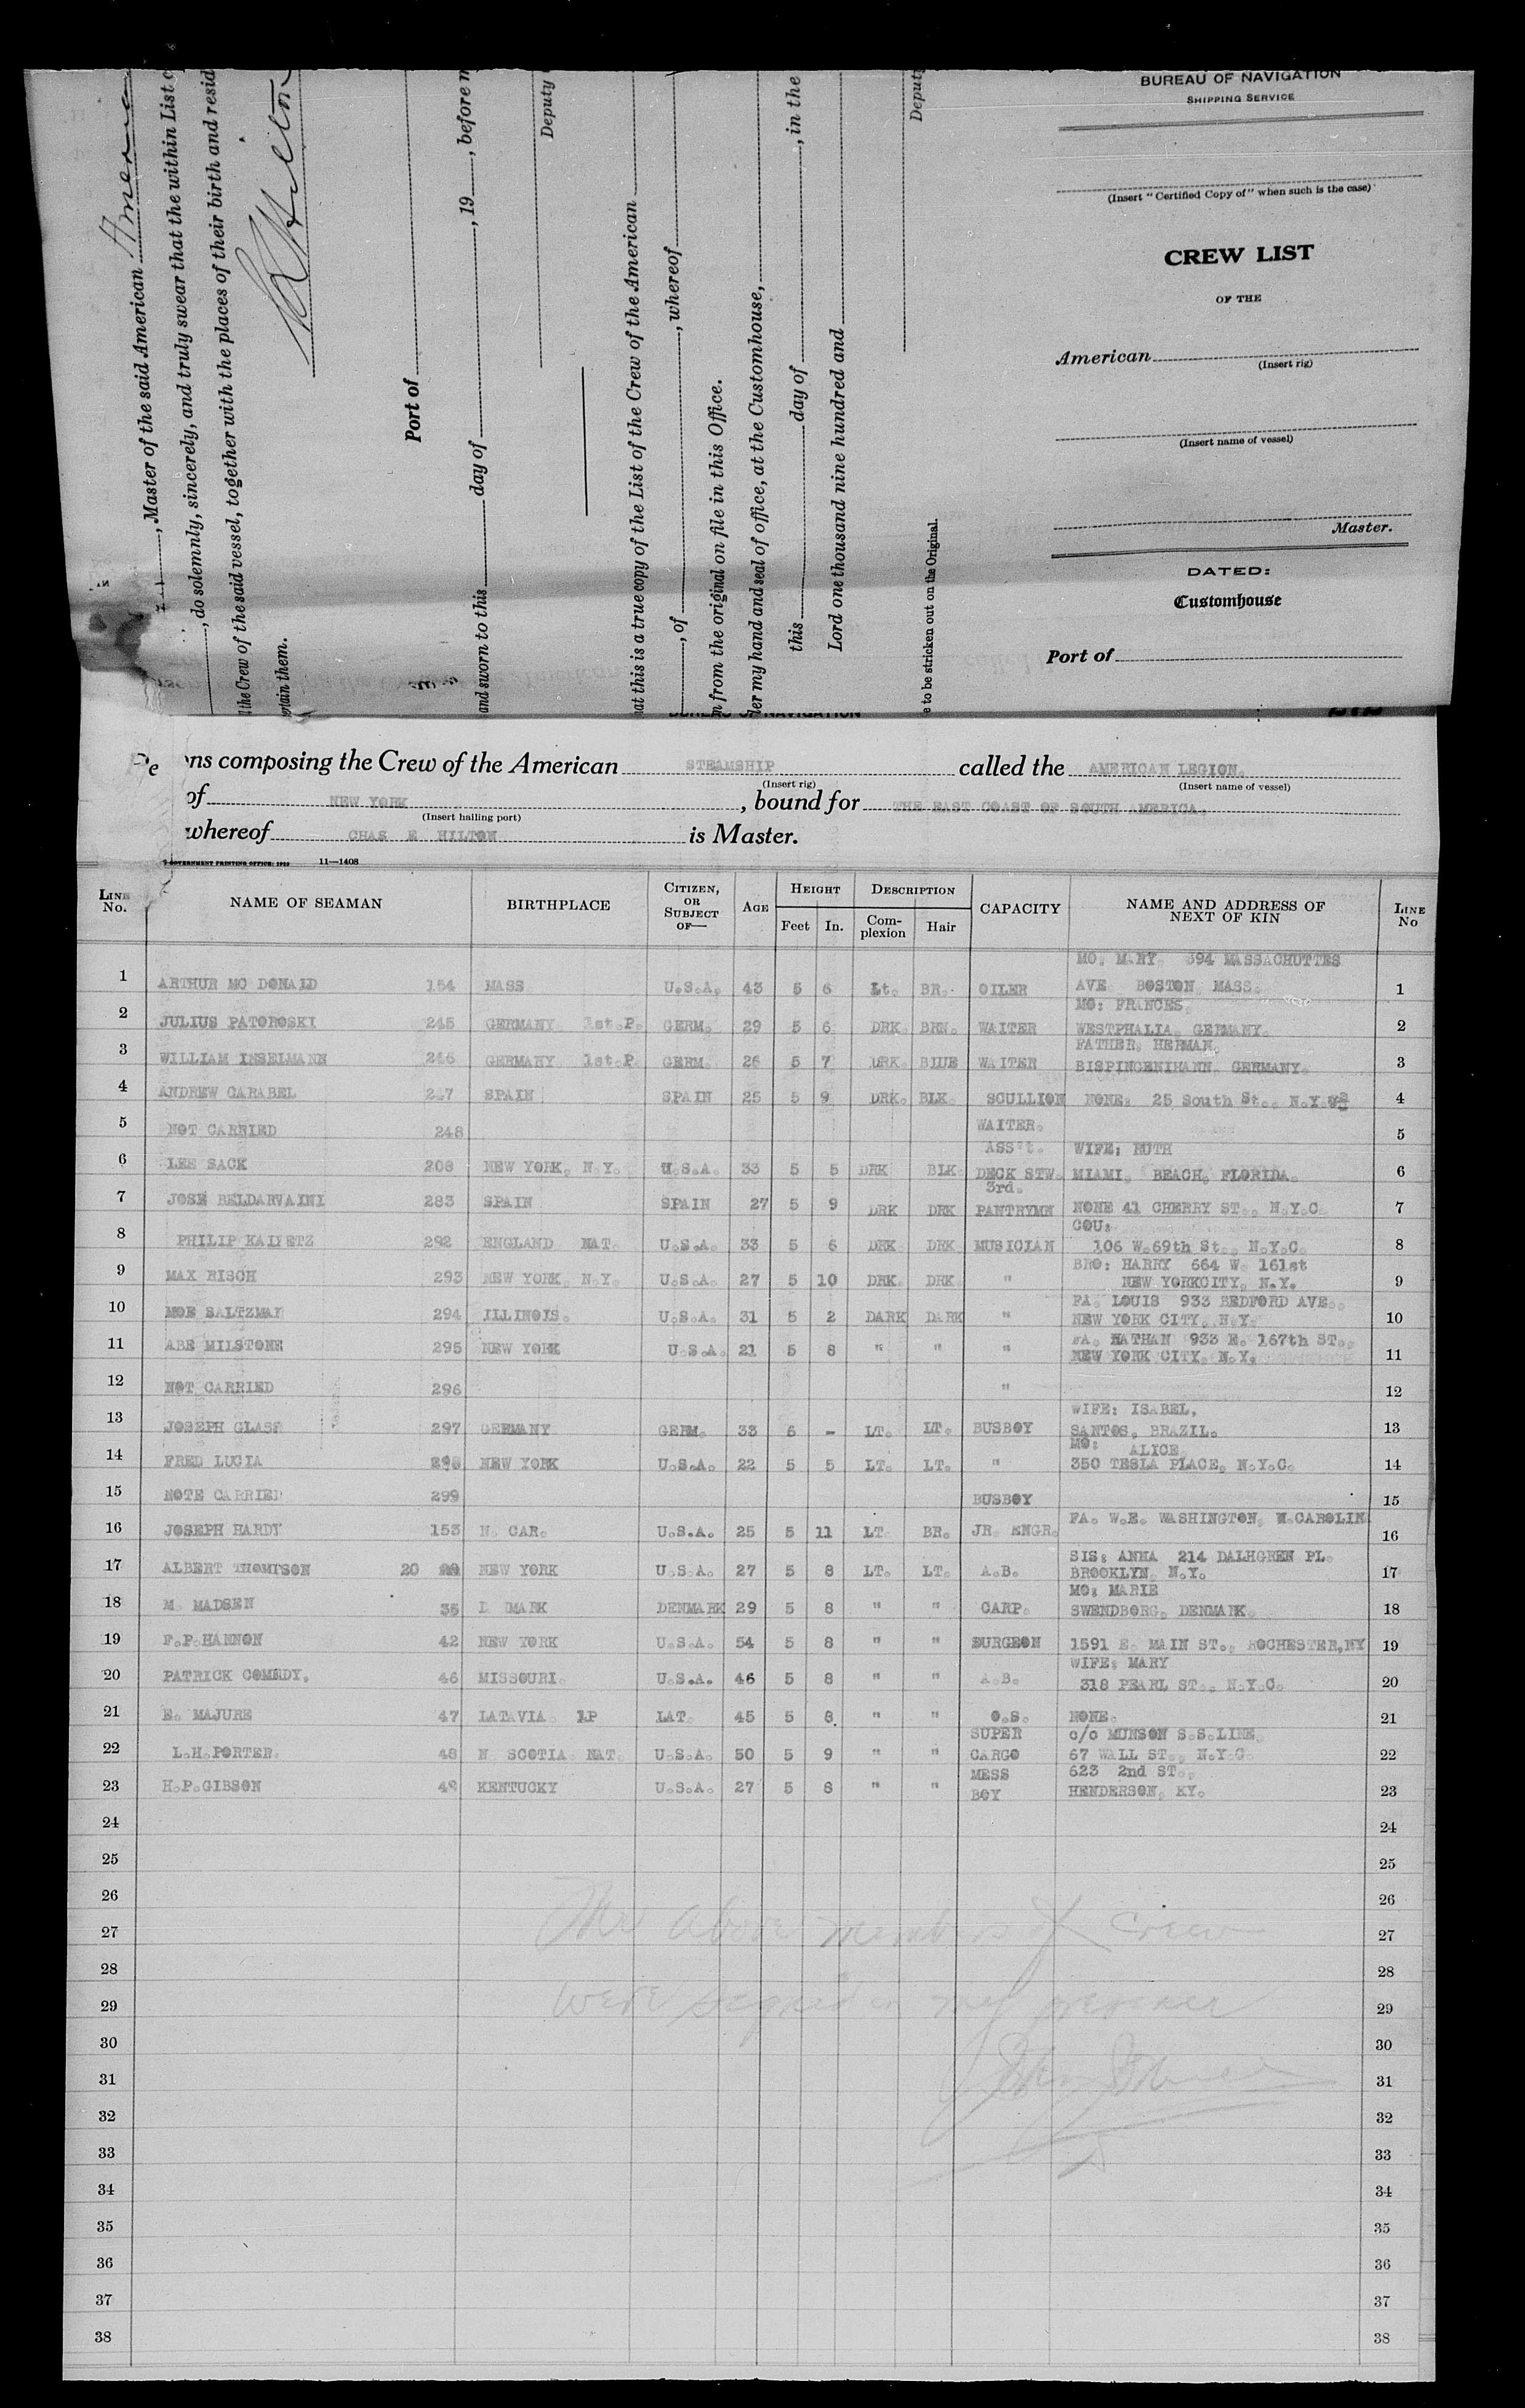 BUREAU OF NAVIGATION
SHIPPING SERVICE
(Insert "Certified Copy of" when such is the case)
CREW LIST
OF THE
American
(Insert rig)
(Insert name of vessel)
Master.
DATED:
Customhouse
Port of
, Master of the said American
, do solemnly, sincerely, and truly swear that the within List
the Crew of the said vessel, together with the places of their birth and resid
tain them.
Port of
and sworn to this day of , 19 , before m
Deputy
at this is a true copy of the List of the Crew of the American
, of , whereof
from the original on file in this Office.
er my hand and seal of office, at the Customhouse,
this day of , in the
Lord one thousand nine hundred and
Deputy
e to be stricken out on the Original.
ns composing the Crew of the American STEAMSHIP called the AMERICAN LEGION.
(Insert rig) (Insert name of vessel)
of NEW YORK , bound for THE EAST COAST OF SOUTH AMERICA.
(Insert hailing port)
whereof CHAS E HILTON is Master.
GOVERNMENT PRINTING OFFICE: 11—1408
LINE No. NAME OF SEAMAN BIRTHPLACE CITIZEN, OR SUBJECT OF— AGE HEIGHT Feet In. DESCRIPTION Complexion Hair CAPACITY NAME AND ADDRESS OF NEXT OF KIN LINE No
1 ARTHUR MC DONALD 154 MASS U.S.A. 43 5 6 Lt. BR. OILER MO. MARY 394 MASSACHUTTES AVE BOSTON MASS. 1
2 JULIUS PATOROSKI 245 GERMANY 1st.P. GERM. 29 5 6 DRK. BRN. WAITER MO: FRANCES. WESTPHALIA. GERMANY. 2
3 WILLIAM INSELMANN 246 GERMANY 1st.P. GERM. 26 5 7 DRK. BLUE WAITER FATHER: HERMAN. GERMANY. 3
4 ANDREW CARABEL 247 SPAIN SPAIN 25 5 9 DRK. BLK. SCULLION NONE: 25 South St.. N.Y. 4
5 NOT CARRIED 248 WAITER. 5
6 LEE SACK 208 NEW YORK. N.Y. U.S.A. 33 5 5 DRK BLK. ASS't. DECK STW. WIFE: RUTH MIAMI. BEACH. FLORIDA. 6
7 JOSE BELDARVAINI 283 SPAIN SPAIN 27 5 9 DRK DRK 3rd. PANTRYMN NONE 41 CHERRY ST.. N.Y.C. 7
8 PHILIP 292 ENGLAND NAT. U.S.A. 33 5 6 DRK DRK MUSICIAN COU: 106 W.69th St.. N.Y.C. 8
9 MAX RISCH 293 NEW YORK. N.Y. U.S.A. 27 5 10 DRK. DRK " BRO: HARRY 664 W. 161st NEW YORKCITY. N.Y. 9
10 MOE SALTZMAN 294 ILLINOIS. U.S.A. 31 5 2 DARK DARK " FA. LOUIS 933 BEDFORD AVE.. NEW YORK CITY. N.Y. 10
11 ABE MILSTONE 295 NEW YORK U.S.A. 21 5 8 " " " FA. NATHAN 933 E. 167th ST.. NEW YORK CITY. N.Y. 11
12 NOT CARRIED 296 " 12
13 JOSEPH GLASF 297 GERMANY GERM. 33 6 - LT. LT. BUSBOY WIFE: ISABEL, SANTOS. BRAZIL. 13
14 FRED LUCIA 298 NEW YORK U.S.A. 22 5 5 LT. LT. " MO: ALICE 350 TESLA PLACE. N.Y.C. 14
15 NOTE CARRIED 299 BUSBOY 15
16 JOSEPH HARDY 153 N. CAR. U.S.A. 25 5 11 LT. BR. JR. ENGR. FA. W.E. WASHINGTON. N.CAROLIN 16
17 ALBERT THOMPSON 20 NEW YORK U.S.A. 27 5 8 LT. LT. A.B. SIS: ANNA 214 DALHGREN PL. BROOKLYN. N.Y. 17
18 M. MADSEN 35 D MARK DENMARK 29 5 8 " " CARP. MO: MARIE SWENDBORG. DENMARK. 18
19 F.P.HANNON 42 NEW YORK U.S.A. 54 5 8 " " SURGEON 1591 E. MAIN ST.. ROCHESTER,NY 19
20 PATRICK COMEDY. 46 MISSOURI. U.S.A. 46 5 8 " " A.B. WIFE: MARY 318 PEARL ST.. N.Y.C. 20
21 E. MAJURE 47 LATAVIA. 1P LAT. 45 5 8. " " O.S. NONE. 21
22 L.H.PORTER. 48 N. SCOTIA. NAT. U.S.A. 50 5 9 " " SUPER CARGO c/o MUNSON S.S.LINE. 67 WALL ST.. N.Y.C. 22
23 H.P.GIBSON 49 KENTUCKY U.S.A. 27 5 8 " " MESS BOY 623 2nd ST.. HENDERSON. KY. 23
24 24
25 25
26 26
The above members of crew
27 27
28 28
were signed in my presence
29 29
30 30
31 31
32 32
33 33
34 34
35 35
36 36
37 37
38 38